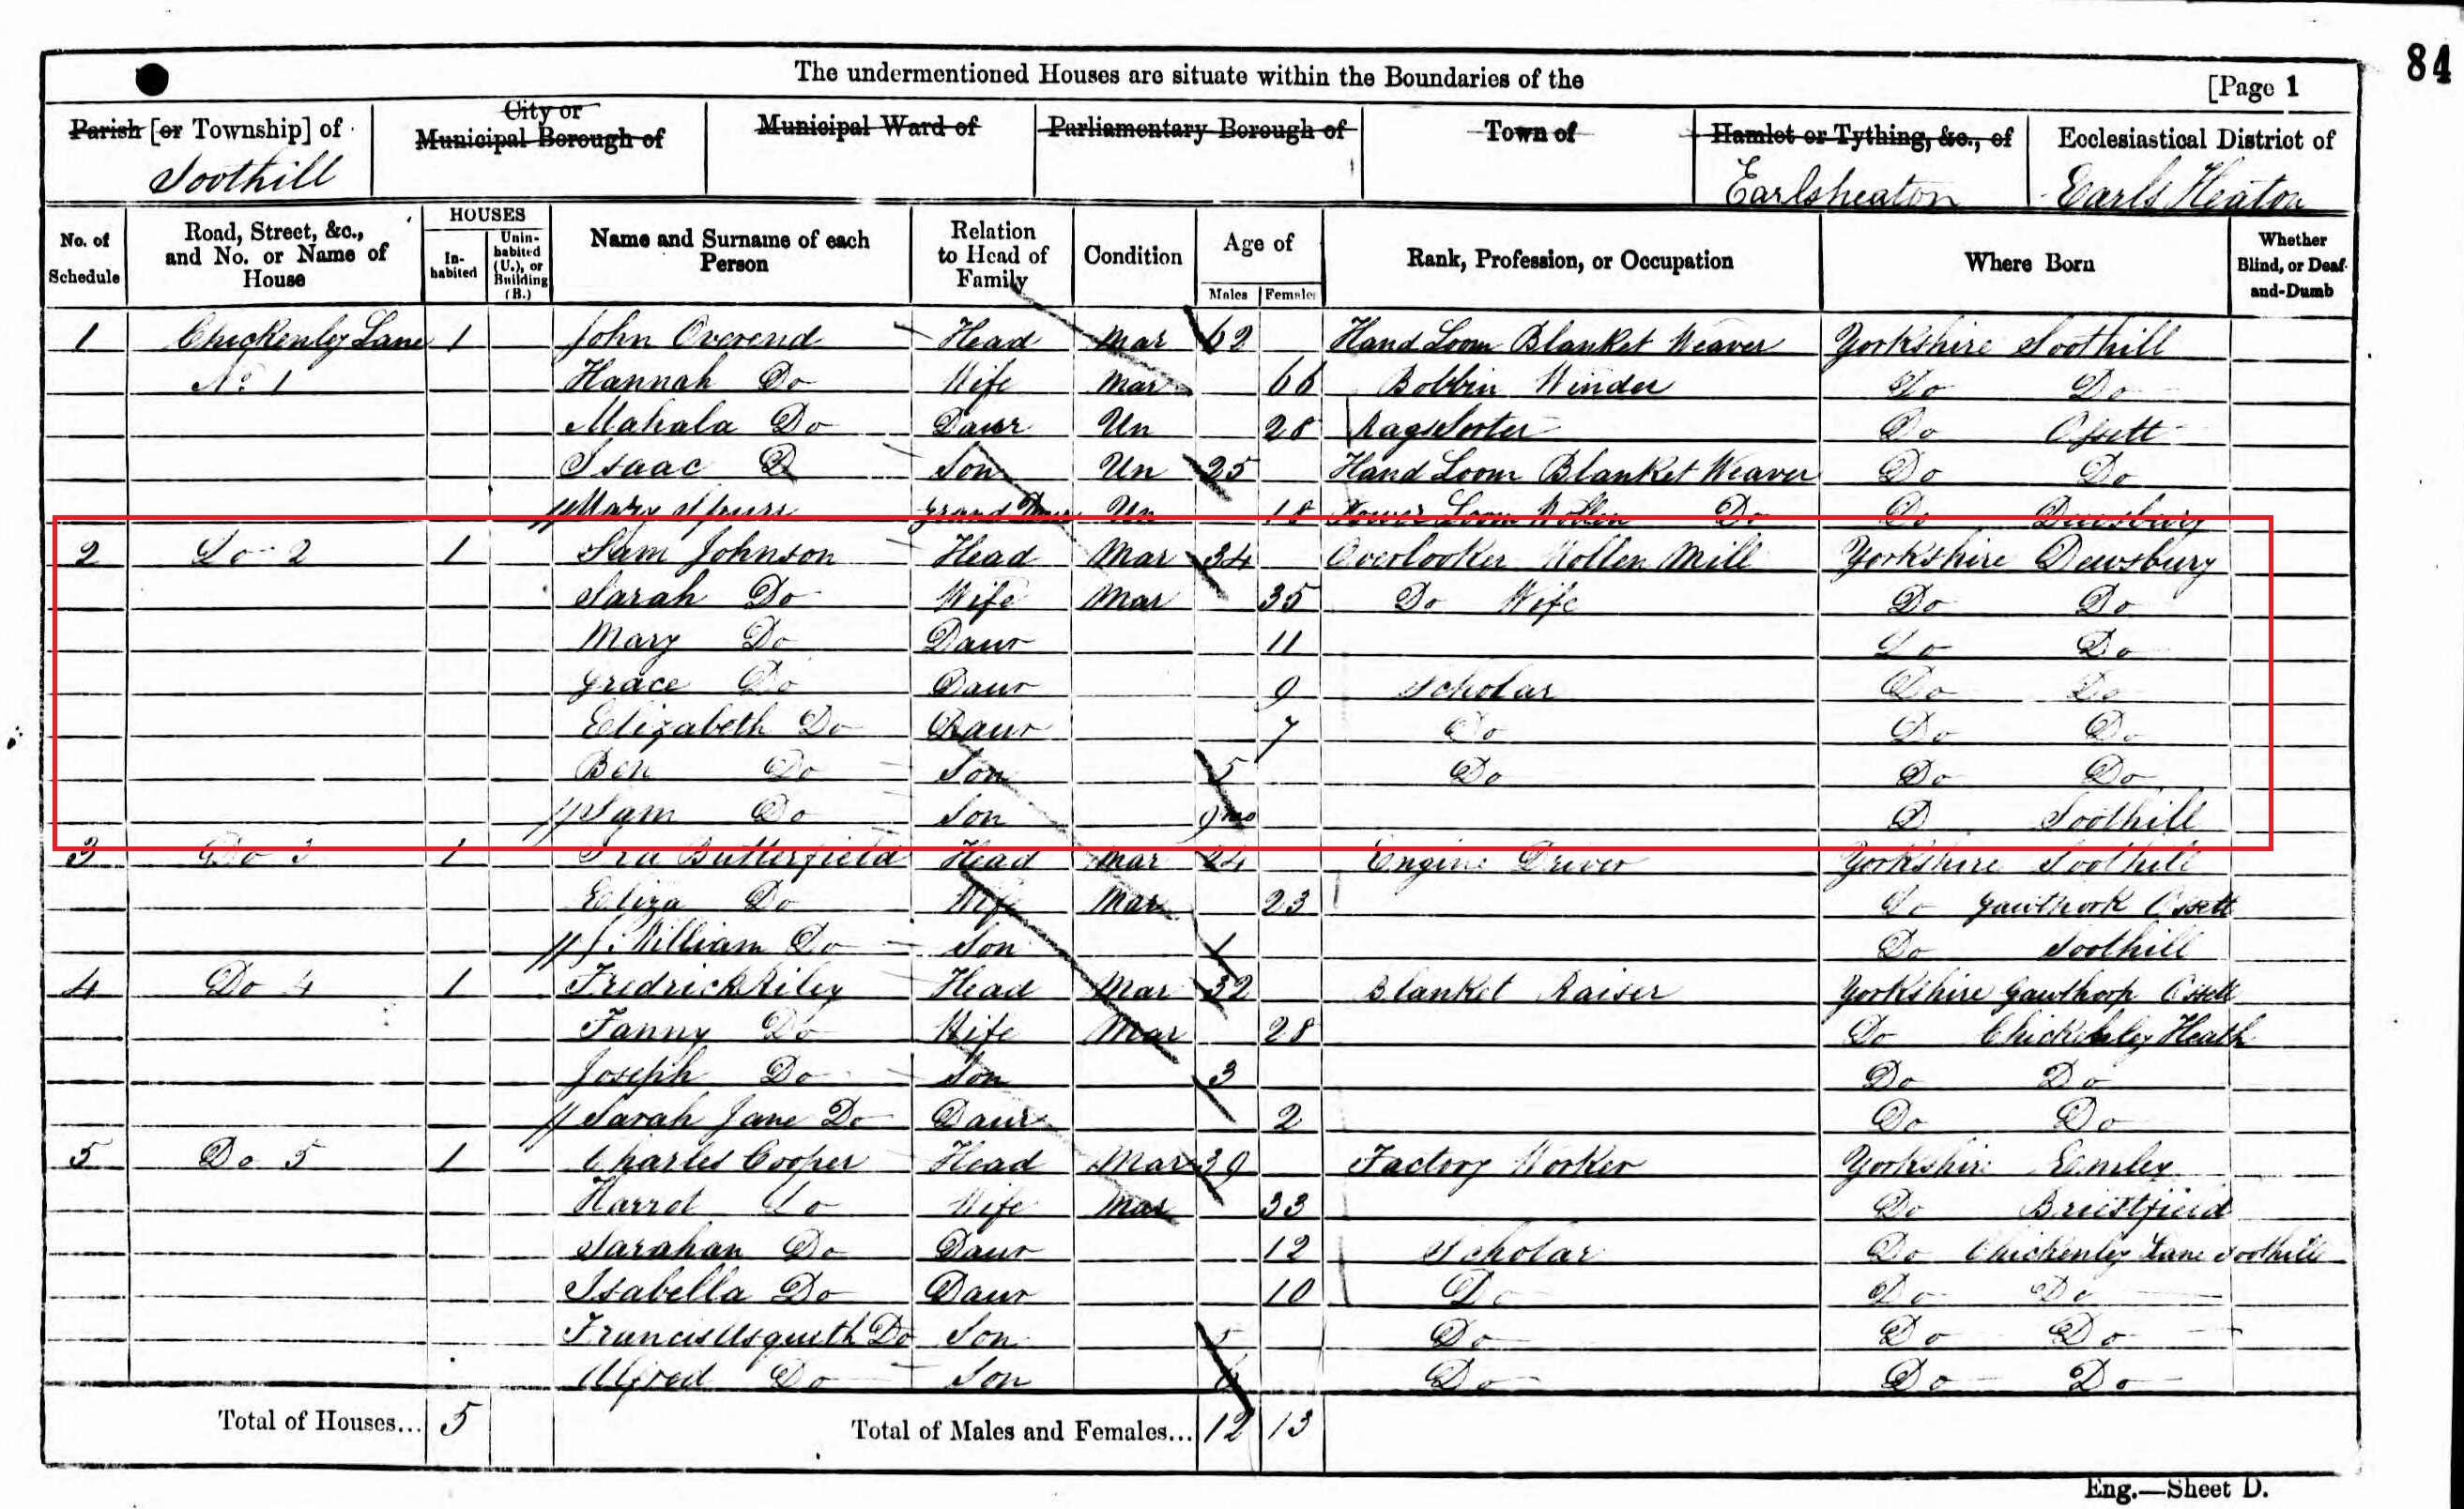 84
The undermentioned Houses are situate within the Boundaries of the [Page 1
Parish [or Township] of City or Municipal Borough of Municipal Ward of Parliamentary Borough of Town of Hamlet or Tything, &c., of Ecclesiastical District of
Soothill Earlsheaton Earls Heaton
No. of Schedule Road, Street, &c., and No. or Name of House HOUSES Inhabited Uninhabited (U.), or Building (B.) Name and Surname of each Person Relation to Head of Family Condition Age of Males Females Rank, Profession, or Occupation Where Born Whether Blind, or Deaf-and-Dumb
1 Chickenley Lane 1 John Overend Head Mar 62 Hand Loom Blanket Weaver Yorkshire Soothill
No 1 Hannah Do Wife Mar 66 Bobbin Winder Do Do
Mahala Do Daur Un 28 Rag Sorter Do Ossett
Isaac D Son Un 25 Hand Loom Blanket Weaver Do Do
Mary Grand Daur Un 18 Power Loom Wollen Do Do Dewsbury
2 Do 2 1 Sam Johnson Head Mar 34 Overlooker Wollen Mill Yorkshire Dewsbury
Sarah Do Wife Mar 35 Do Wife Do Do
Mary Do Daur 11 Do Do
Grace Do Daur 9 Scholar Do Do
Elizabeth Do Daur 7 Do Do Do
Ben Do Son 5 Do Do Do
Sam Do Son 9mo D Soothill
3 Do 3 1 Ira Butterfield Head Mar 24 Engine Driver Yorkshire Soothill
Eliza Do Wife Mar 23 Do Gawthork Ossett
J. William Do Son 1 Do Soothill
4 Do 4 1 Fredrick Riley Head Mar 32 Blanket Raiser Yorkshire Gawthorp Ossett
Fanny Do Wife Mar 28 Do Chickenley Heath
Joseph Do Son 3 Do Do
Sarah Jane Do Daur 2 Do Do
5 Do 5 1 Charles Cooper Head Mar 39 Factory Worker Yorkshire Emley
Harrot Do Wife Mar 33 Do Briestfield
Sarahan Do Daur 12 Scholar Do Chickenley Lane Soothill
Isabella Do Daur 10 Do Do Do
Francis Asquith Do Son Do Do Do
Alfred Do Son 6 Do Do Do
Total of Houses... 5 Total of Males and Females... 12 13
Eng.—Sheet D.